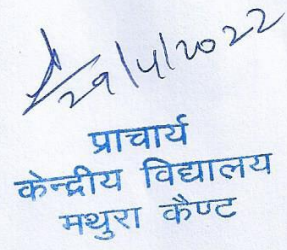 29/4/2022
प्राचार्य
केन्द्रीय विद्यालय
मथुरा कैण्ट